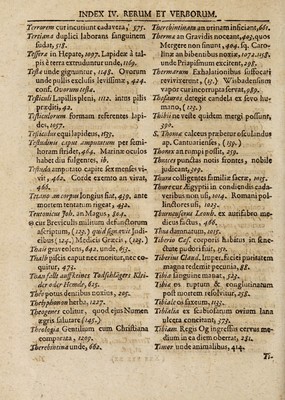 INDEX IV. RERUM ET VERBORUM.
Terrarum cur incutiunt cadavera, 575.
Tertiana duplici laborans sanguinem
sudat, 518.
Tessera in Hepate, 1097. Lapidez à talpis
è terra extruduntur unde, 1169.
Testa unde gignuntur, 1148. Ovorum
unde pullis exclusis levissimæ, 424.
conf. Ovorum testa.
Testiculis Lapilli pleni, 1112. intus pilis
præditi, 42.
Testiculorum formam referentes lapides,
1057.
Testiculos equi lapideus, 1535.
Testudinis caput amputatum per semihoram
stridet, 464. Marinæ oculos
habet diu fulgentes, ib.
Testudo amputato capite sex menses vivit,
462. Corde exempto an vivat,
466.
Tetano an corpus longius fiat, 439. ante
mortem tentatur in segete, 452.
Teutonicus Joh. an Magus, 864.
ejus Breviculis militum defunctorum
ascriptum, (125.) quid signavit Judicibus
(124.) Medicis Græcis (125.)
Thale graveolens, 642. unde, 652.
Thalb piscis caput nec moritur, nec coquitur,
475.
Thau falle auff keines Todtschlägers Kleider
oder Hemde, 625.
Thée potus dentibus noxius, 205.
Thelyphonon herba, 1227.
Theogenes colitur, quod ejus Numen
ægris salutare (145.)
Theologia Gentilium cum Christiana
comparata, 1209.
Therebintina unde, 662.
Therebinthinatam an urinam inficiant, 661.
Therma an Gravidis noceant, 403. quos
Mergere non sinunt, 404. sq. Carolinæ
an bibentibus noxiæ, 1072. 1158.
unde Priapismum excitent, 298.
Thermarum Exhalationibus suffocati
reviviscentes, (32.) Wisbadensium
vapor cur incorrupta servat, 989.
Thesauros detegit candela ex sevo humano,
(123.)
Thibii ne veste quidem mergi possunt,
390.
S. Thomæ calceus præbetur osculandus
ap. Cantuarienses, (139.)
Thorax an rumpi possit, 219.
Thraces punctas notis frontes, nobile
judicant, 319.
Thura colligentes familiæ sacræ, 1015.
Thure cur Ægyptii in condiendis cadaveribus
non usi, 1014. Romani pollinctores
usi, 1022.
Thurneusserus Leonh. ex aurifabro medicus,
466.
Thus damnatum, 1015.
Tiberio Cæs. corporis habitus in senectute
pudori fuit, 150.
Tiberius Claud. Imper. faciei puritatem
magna redemit pecunia, 88.
Tibia sanguine manat, 125.
Tibiæ os ruptum & conglutinatum
post mortem resolvitur, 258.
Tibiale os saxeum, 1135.
Tibialia ex scabiosarum ovium lana
ulcera concitant, 679.
Tibiam Regis Og ingressus cervus medium
in ea diem oberrat, 281.
Timor unde animalibus, 414.
Ti-